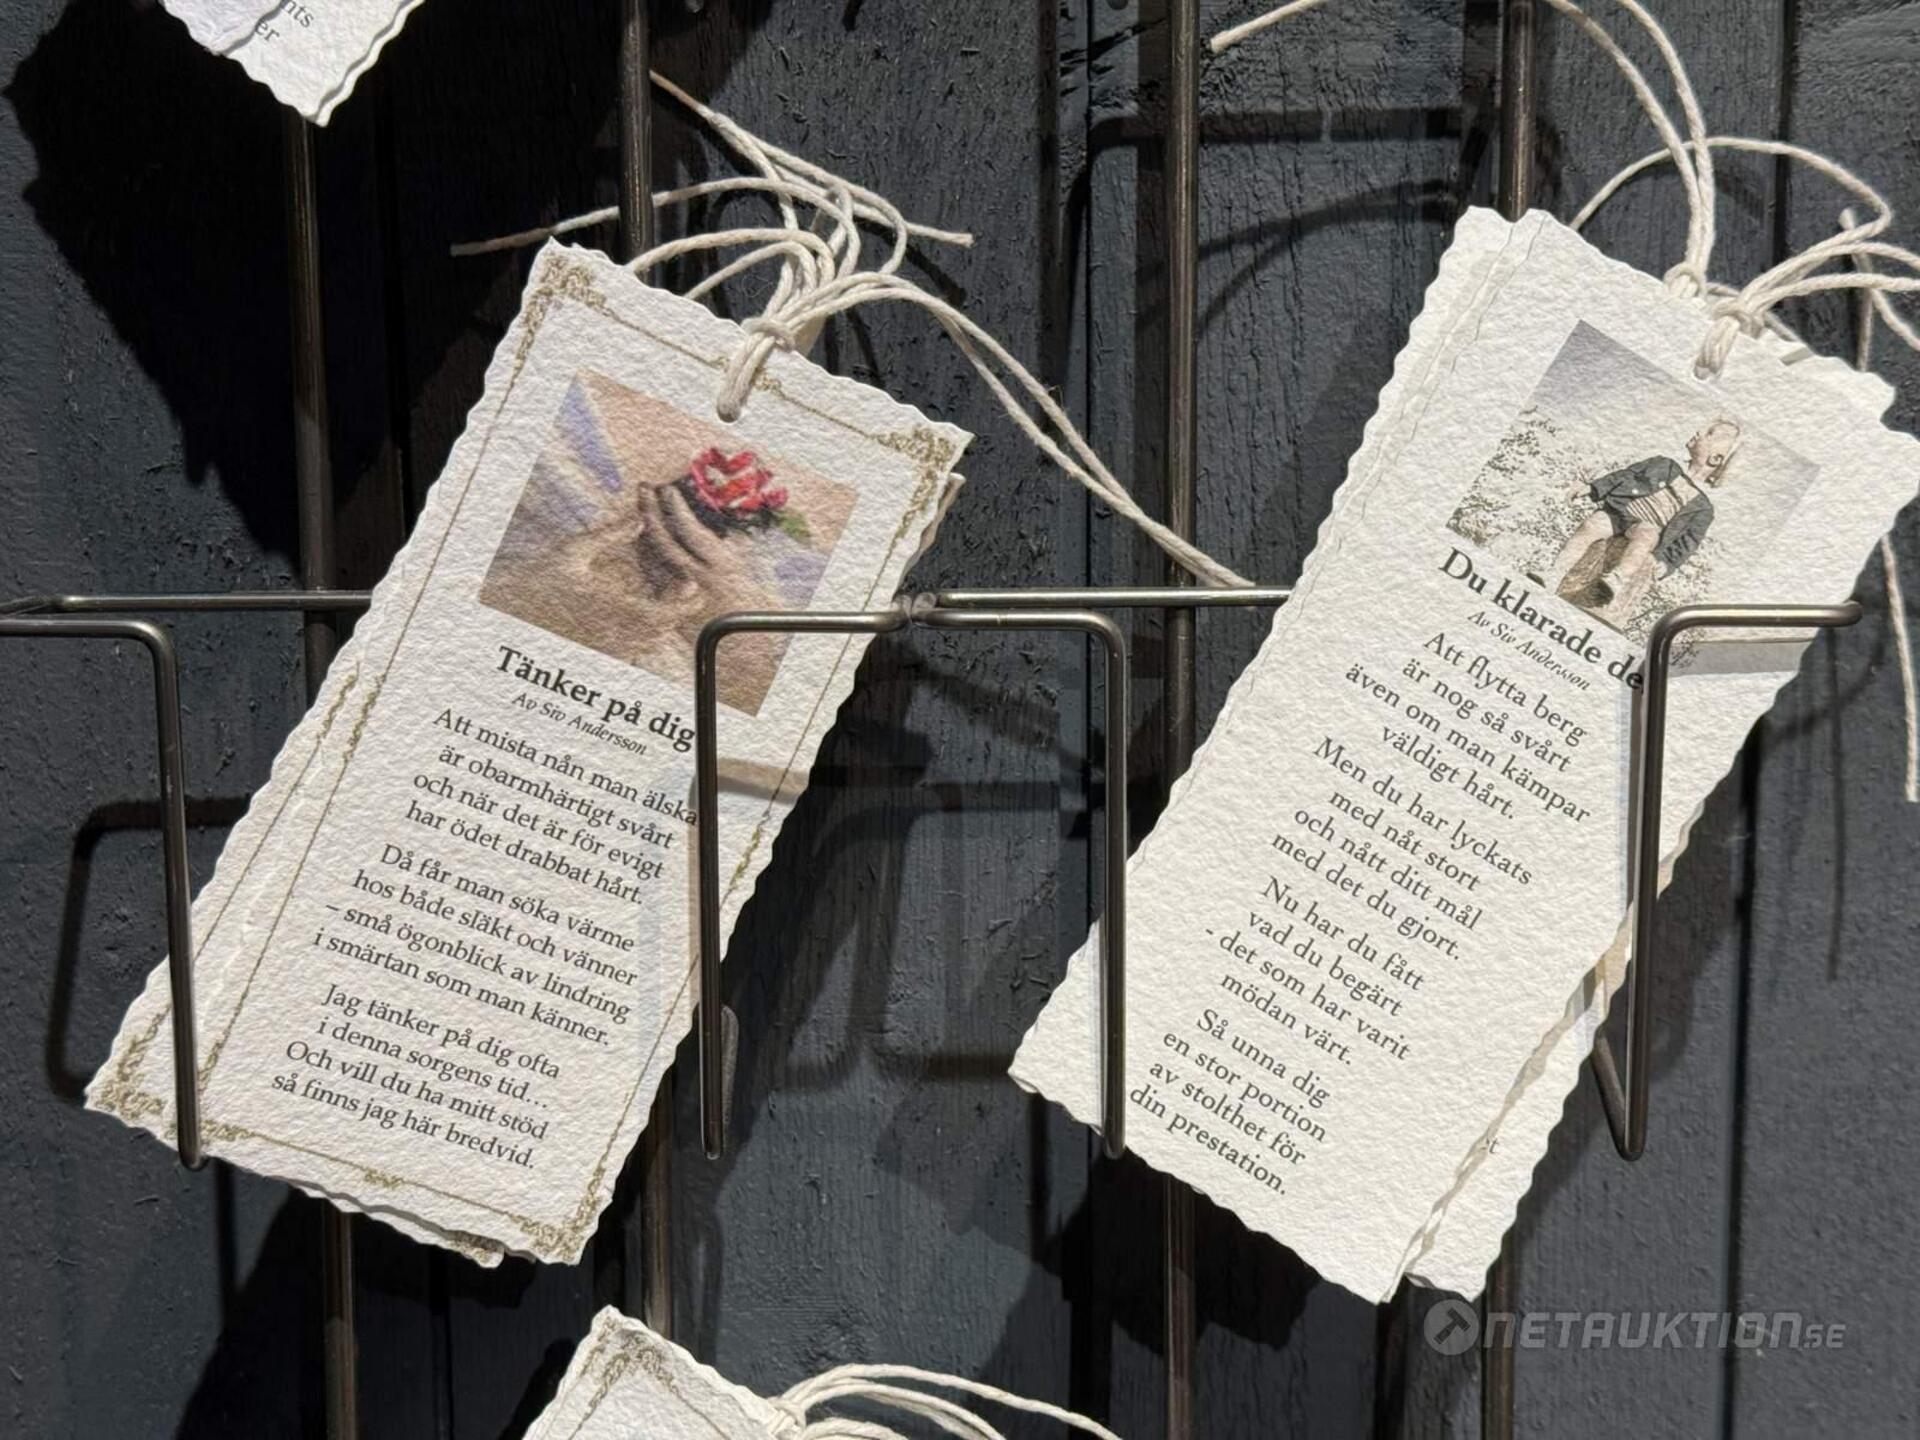 nts
er
Tänker på dig
Av Siv Andersson
Att mista nån man älska
är obarmhärtigt svårt
och när det är för evigt
har ödet drabbat hårt.
Då får man söka värme
hos både släkt och vänner
– små ögonblick av lindring
i smärtan som man känner.
Jag tänker på dig ofta
i denna sorgens tid...
Och vill du ha mitt stöd
så finns jag här bredvid.
Du klarade de
Av Siv Andersson
Att flytta berg
är nog så svårt
även om man kämpar
väldigt hårt.
Men du har lyckats
med nåt stort
och nått ditt mål
med det du gjort.
Nu har du fått
vad du begärt
- det som har varit
mödan värt.
Så unna dig
en stor portion
av stolthet för
din prestation.
et
NETAUKTION.SE